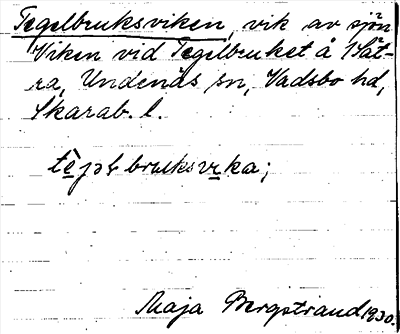 Tegelbruksviken, vik av sjön
Viken vid Tegelbruket å Sät-
ra, Undenäs sn, Vadsbo hd,
Skarab. l.
bruksvɩka;
Maja Bergstrand 1930.